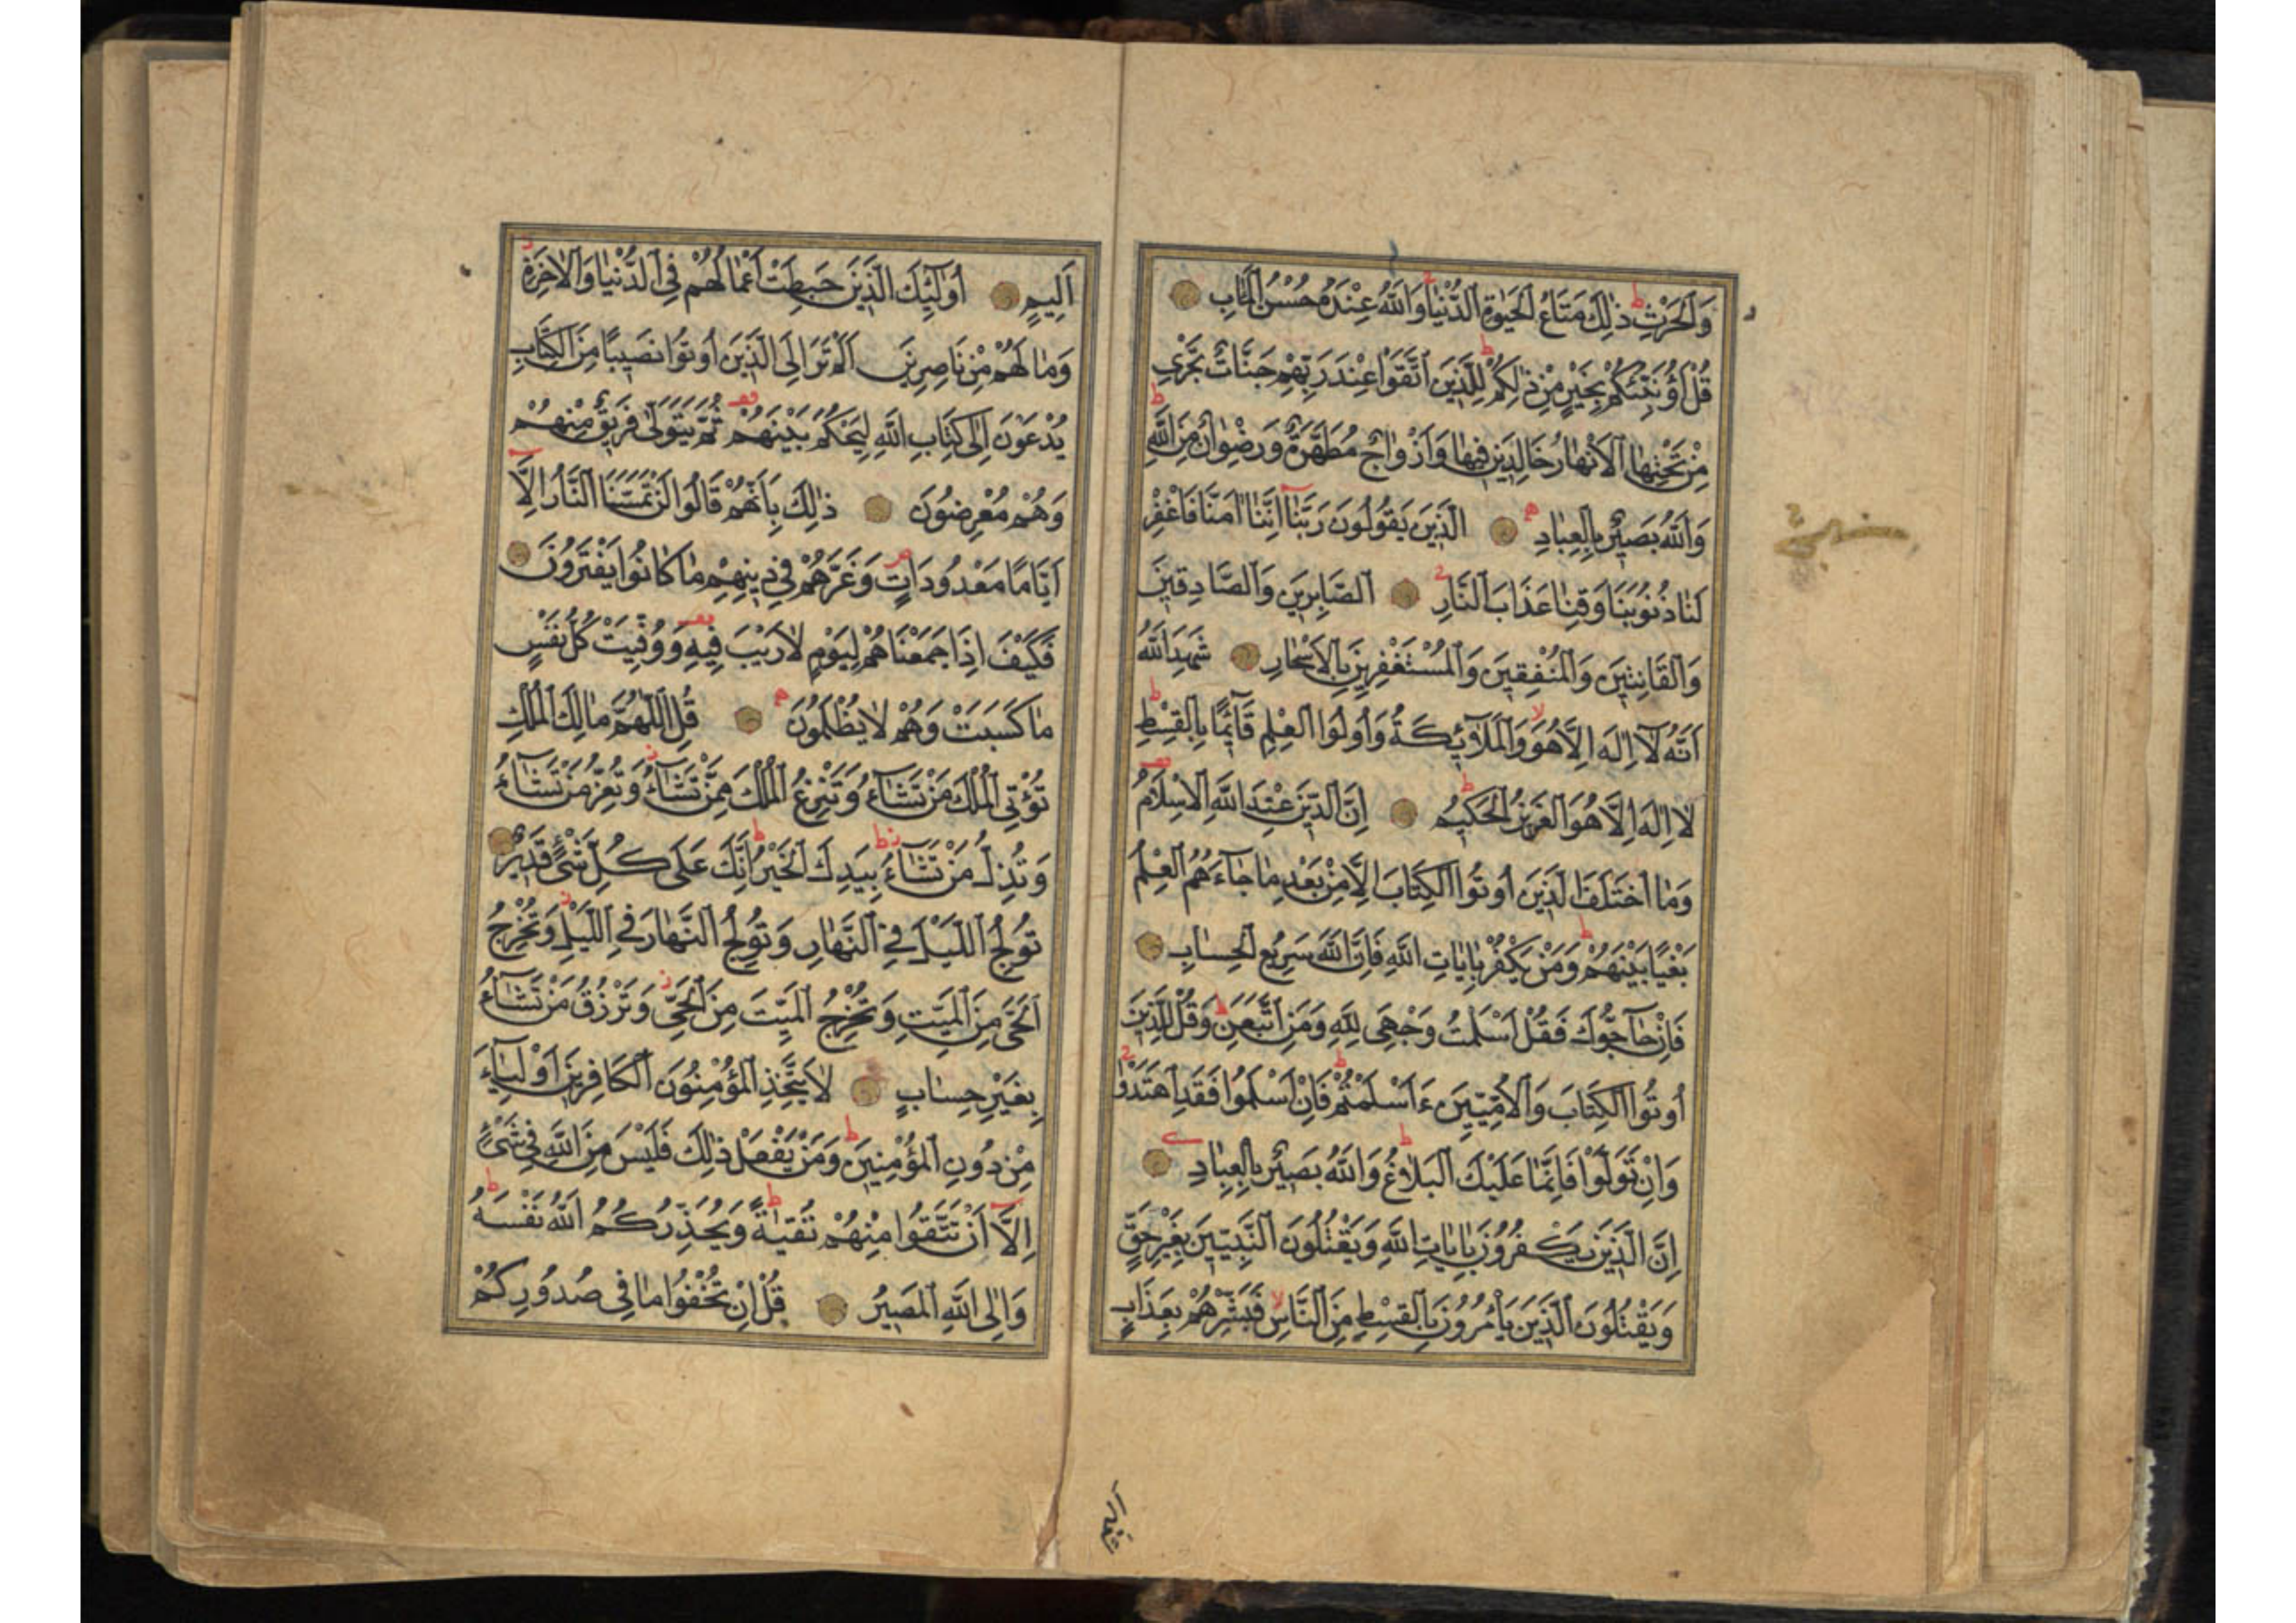 وَالْحَرْثِ ذٰلِكَ مَتَاعُ الْحَيٰوةِ الدُّنْيَا وَاللّٰهُ عِنْدَهُ حُسْنُ الْمَاٰبِ
قُلْ اَؤُنَبِّئُكُمْ بِخَيْرٍ مِنْ ذٰلِكُمْ لِلَّذِينَ اتَّقَوْا عِنْدَ رَبِّهِمْ جَنَّاتٌ تَجْرِي
مِنْ تَحْتِهَا الْاَنْهَارُ خَالِدِينَ فِيهَا وَاَزْوَاجٌ مُطَهَّرَةٌ وَرِضْوَانٌ مِنَ اللّٰهِ
وَاللّٰهُ بَصِيرٌ بِالْعِبَادِ الَّذِينَ يَقُولُونَ رَبَّنَا اِنَّنَا اٰمَنَّا فَاغْفِرْ
لَنَا ذُنُوبَنَا وَقِنَا عَذَابَ النَّارِ الصَّابِرِينَ وَالصَّادِقِينَ
وَالْقَانِتِينَ وَالْمُنْفِقِينَ وَالْمُسْتَغْفِرِينَ بِالْاَسْحَارِ شَهِدَ اللّٰهُ
اَنَّهُ لَا اِلٰهَ اِلَّا هُوَ وَالْمَلٰٓئِكَةُ وَاُولُوا الْعِلْمِ قَآئِمًا بِالْقِسْطِ
لَا اِلٰهَ اِلَّا هُوَ الْعَزِيزُ الْحَكِيمُ اِنَّ الدِّينَ عِنْدَ اللّٰهِ الْاِسْلَامُ
وَمَا اخْتَلَفَ الَّذِينَ اُوتُوا الْكِتَابَ اِلَّا مِنْ بَعْدِ مَا جَآءَهُمُ الْعِلْمُ
بَغْيًا بَيْنَهُمْ وَمَنْ يَكْفُرْ بِاٰيَاتِ اللّٰهِ فَاِنَّ اللّٰهَ سَرِيعُ الْحِسَابِ
فَاِنْ حَآجُّوكَ فَقُلْ اَسْلَمْتُ وَجْهِيَ لِلّٰهِ وَمَنِ اتَّبَعَنِ وَقُلْ لِلَّذِينَ
اُوتُوا الْكِتَابَ وَالْاُمِّيِّينَ ءَاَسْلَمْتُمْ فَاِنْ اَسْلَمُوا فَقَدِ اهْتَدَوْا
وَاِنْ تَوَلَّوْا فَاِنَّمَا عَلَيْكَ الْبَلَاغُ وَاللّٰهُ بَصِيرٌ بِالْعِبَادِ
اِنَّ الَّذِينَ يَكْفُرُونَ بِاٰيَاتِ اللّٰهِ وَيَقْتُلُونَ النَّبِيِّينَ بِغَيْرِ حَقٍّ
وَيَقْتُلُونَ الَّذِينَ يَأْمُرُونَ بِالْقِسْطِ مِنَ النَّاسِ فَبَشِّرْهُمْ بِعَذَابٍ
اَلِيمٍ اُولٰٓئِكَ الَّذِينَ حَبِطَتْ اَعْمَالُهُمْ فِي الدُّنْيَا وَالْاٰخِرَةِ
وَمَا لَهُمْ مِنْ نَاصِرِينَ اَلَمْ تَرَ اِلَى الَّذِينَ اُوتُوا نَصِيبًا مِنَ الْكِتَابِ
يُدْعَوْنَ اِلٰى كِتَابِ اللّٰهِ لِيَحْكُمَ بَيْنَهُمْ ثُمَّ يَتَوَلّٰى فَرِيقٌ مِنْهُمْ
وَهُمْ مُعْرِضُونَ ذٰلِكَ بِاَنَّهُمْ قَالُوا لَنْ تَمَسَّنَا النَّارُ اِلَّا
اَيَّامًا مَعْدُودَاتٍ وَغَرَّهُمْ فِي دِينِهِمْ مَا كَانُوا يَفْتَرُونَ
فَكَيْفَ اِذَا جَمَعْنَاهُمْ لِيَوْمٍ لَا رَيْبَ فِيهِ وَوُفِّيَتْ كُلُّ نَفْسٍ
مَا كَسَبَتْ وَهُمْ لَا يُظْلَمُونَ قُلِ اللّٰهُمَّ مَالِكَ الْمُلْكِ
تُؤْتِي الْمُلْكَ مَنْ تَشَآءُ وَتَنْزِعُ الْمُلْكَ مِمَّنْ تَشَآءُ وَتُعِزُّ مَنْ تَشَآءُ
وَتُذِلُّ مَنْ تَشَآءُ بِيَدِكَ الْخَيْرُ اِنَّكَ عَلٰى كُلِّ شَيْءٍ قَدِيرٌ
تُولِجُ اللَّيْلَ فِي النَّهَارِ وَتُولِجُ النَّهَارَ فِي اللَّيْلِ وَتُخْرِجُ
الْحَيَّ مِنَ الْمَيِّتِ وَتُخْرِجُ الْمَيِّتَ مِنَ الْحَيِّ وَتَرْزُقُ مَنْ تَشَآءُ
بِغَيْرِ حِسَابٍ لَا يَتَّخِذِ الْمُؤْمِنُونَ الْكَافِرِينَ اَوْلِيَآءَ
مِنْ دُونِ الْمُؤْمِنِينَ وَمَنْ يَفْعَلْ ذٰلِكَ فَلَيْسَ مِنَ اللّٰهِ فِي شَيْءٍ
اِلَّا اَنْ تَتَّقُوا مِنْهُمْ تُقٰيةً وَيُحَذِّرُكُمُ اللّٰهُ نَفْسَهُ
وَاِلَى اللّٰهِ الْمَصِيرُ قُلْ اِنْ تُخْفُوا مَا فِي صُدُورِكُمْ